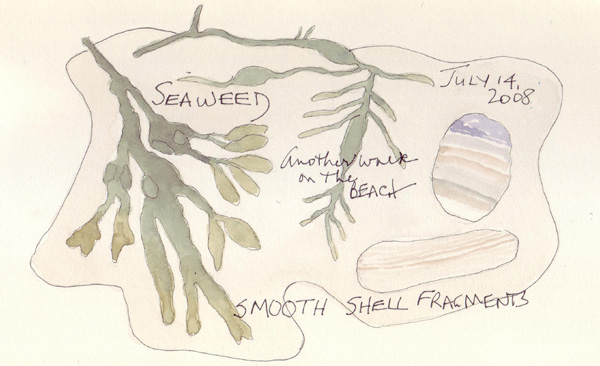 SEAWEED
JULY 14,
2008
Another walk
on the
BEACH
SMOOTH SHELL FRAGMENTS